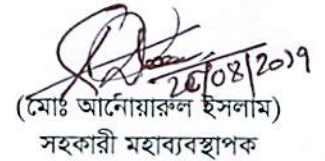 26/08/2019
(মোঃ আনোয়ারুল ইসলাম)
সহকারী মহাব্যবস্থাপক